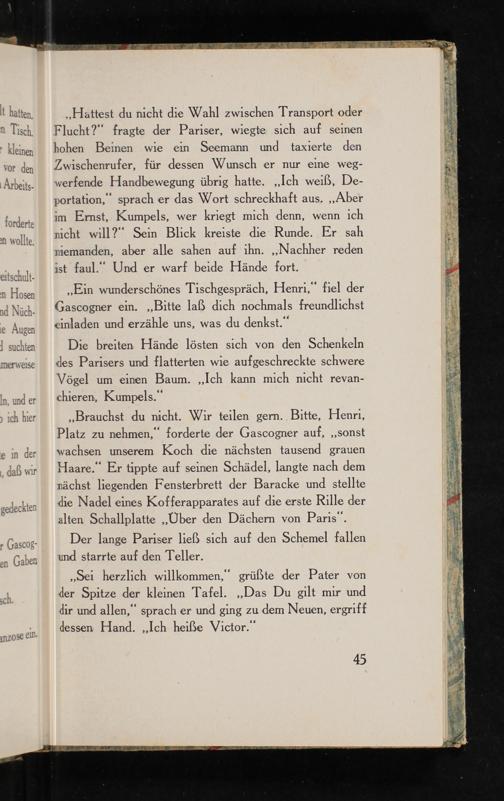 lt hatten,
n Tisch.
r kleinen
vor den
Arbeits-
forderte
en wollte.
eitschult-
en Hosen
nd Nüch-
ie Augen
d suchten
merweise
ln, und er
o ich hier
te in der
, daß wir
gedeckten
r Gascog-
en Gaben
sch.
anzose ein.
„Hattest du nicht die Wahl zwischen Transport oder
Flucht?“ fragte der Pariser, wiegte sich auf seinen
hohen Beinen wie ein Seemann und taxierte den
Zwischenrufer, für dessen Wunsch er nur eine weg-
werfende Handbewegung übrig hatte. „Ich weiß, De-
portation,“ sprach er das Wort schreckhaft aus. „Aber
im Ernst, Kumpels, wer kriegt mich denn, wenn ich
nicht will?“ Sein Blick kreiste die Runde. Er sah
niemanden, aber alle sahen auf ihn. „Nachher reden
ist faul.“ Und er warf beide Hände fort.
„Ein wunderschönes Tischgespräch, Henri,“ fiel der
Gascogner ein. „Bitte laß dich nochmals freundlichst
einladen und erzähle uns, was du denkst.“
Die breiten Hände lösten sich von den Schenkeln
des Parisers und flatterten wie aufgeschreckte schwere
Vögel um einen Baum. „Ich kann mich nicht revan-
chieren, Kumpels.“
„Brauchst du nicht. Wir teilen gern. Bitte, Henri,
Platz zu nehmen,“ forderte der Gascogner auf, „sonst
wachsen unserem Koch die nächsten tausend grauen
Haare.“ Er tippte auf seinen Schädel, langte nach dem
nächst liegenden Fensterbrett der Baracke und stellte
die Nadel eines Kofferapparates auf die erste Rille der
alten Schallplatte „Über den Dächern von Paris“.
Der lange Pariser ließ sich auf den Schemel fallen
und starrte auf den Teller.
„Sei herzlich willkommen,“ grüßte der Pater von
der Spitze der kleinen Tafel. „Das Du gilt mir und
dir und allen,“ sprach er und ging zu dem Neuen, ergriff
dessen Hand. „Ich heiße Victor.“
45